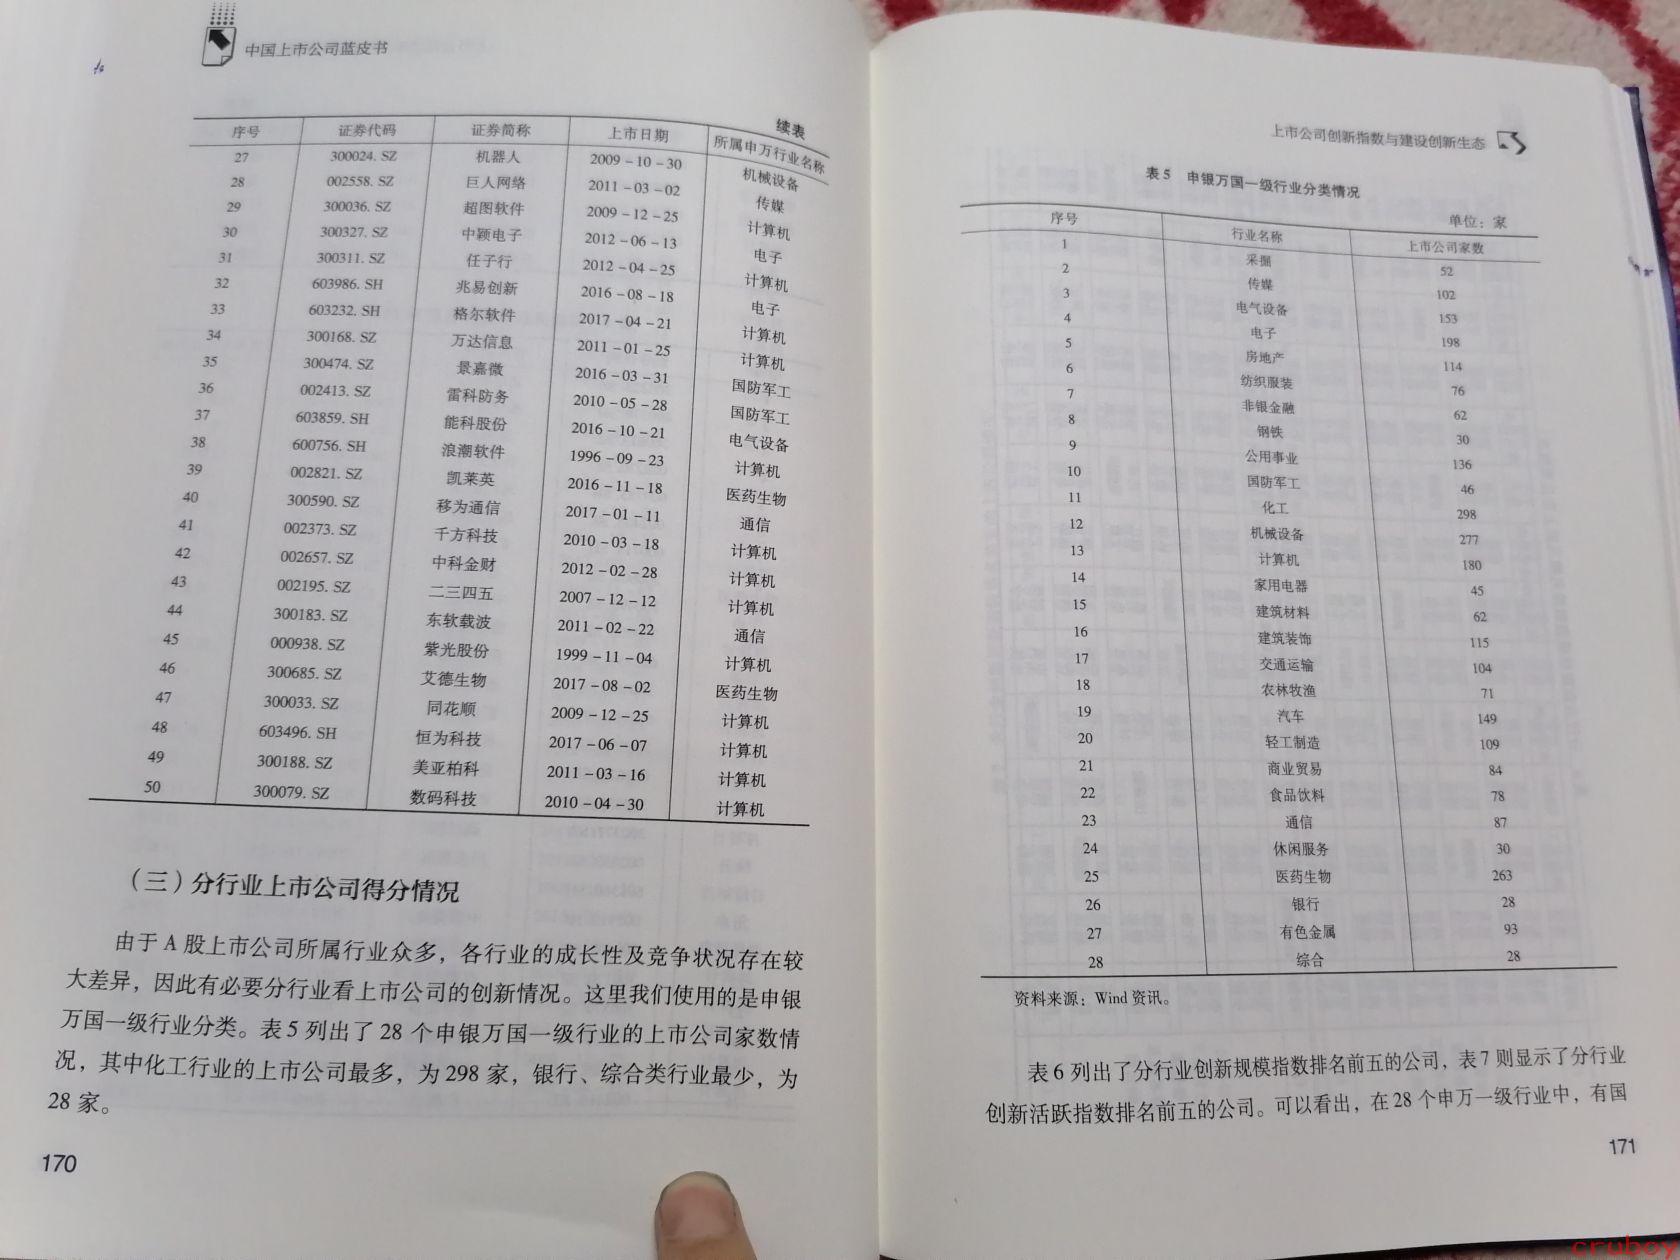 中国上市公司蓝皮书
续表
序号 证券代码 证券简称 上市日期 所属申万行业名称
27 300024. SZ 机器人 2009-10-30 机械设备
28 002558. SZ 巨人网络 2011-03-02 传媒
29 300036. SZ 超图软件 2009-12-25 计算机
30 300327. SZ 中颖电子 2012-06-13 电子
31 300311. SZ 任子行 2012-04-25 计算机
32 603986. SH 兆易创新 2016-08-18 电子
33 603232. SH 格尔软件 2017-04-21 计算机
34 300168. SZ 万达信息 2011-01-25 计算机
35 300474. SZ 景嘉微 2016-03-31 国防军工
36 002413. SZ 雷科防务 2010-05-28 国防军工
37 603859. SH 能科股份 2016-10-21 电气设备
38 600756. SH 浪潮软件 1996-09-23 计算机
39 002821. SZ 凯莱英 2016-11-18 医药生物
40 300590. SZ 移为通信 2017-01-11 通信
41 002373. SZ 千方科技 2010-03-18 计算机
42 002657. SZ 中科金财 2012-02-28 计算机
43 002195. SZ 二三四五 2007-12-12 计算机
44 300183. SZ 东软载波 2011-02-22 通信
45 000938. SZ 紫光股份 1999-11-04 计算机
46 300685. SZ 艾德生物 2017-08-02 医药生物
47 300033. SZ 同花顺 2009-12-25 计算机
48 603496. SH 恒为科技 2017-06-07 计算机
49 300188. SZ 美亚柏科 2011-03-16 计算机
50 300079. SZ 数码科技 2010-04-30 计算机
（三）分行业上市公司得分情况
由于 A 股上市公司所属行业众多，各行业的成长性及竞争状况存在较
大差异，因此有必要分行业看上市公司的创新情况。这里我们使用的是申银
万国一级行业分类。表 5 列出了 28 个申银万国一级行业的上市公司家数情
况，其中化工行业的上市公司最多，为 298 家，银行、综合类行业最少，为
28 家。
170
上市公司创新指数与建设创新生态
表 5 申银万国一级行业分类情况
单位：家
序号 行业名称 上市公司家数
1 采掘 52
2 传媒 102
3 电气设备 153
4 电子 198
5 房地产 114
6 纺织服装 76
7 非银金融 62
8 钢铁 30
9 公用事业 136
10 国防军工 46
11 化工 298
12 机械设备 277
13 计算机 180
14 家用电器 45
15 建筑材料 62
16 建筑装饰 115
17 交通运输 104
18 农林牧渔 71
19 汽车 149
20 轻工制造 109
21 商业贸易 84
22 食品饮料 78
23 通信 87
24 休闲服务 30
25 医药生物 263
26 银行 28
27 有色金属 93
28 综合 28
资料来源：Wind 资讯。
表 6 列出了分行业创新规模指数排名前五的公司，表 7 则显示了分行业
创新活跃指数排名前五的公司。可以看出，在 28 个申万一级行业中，有国
171
cruboy